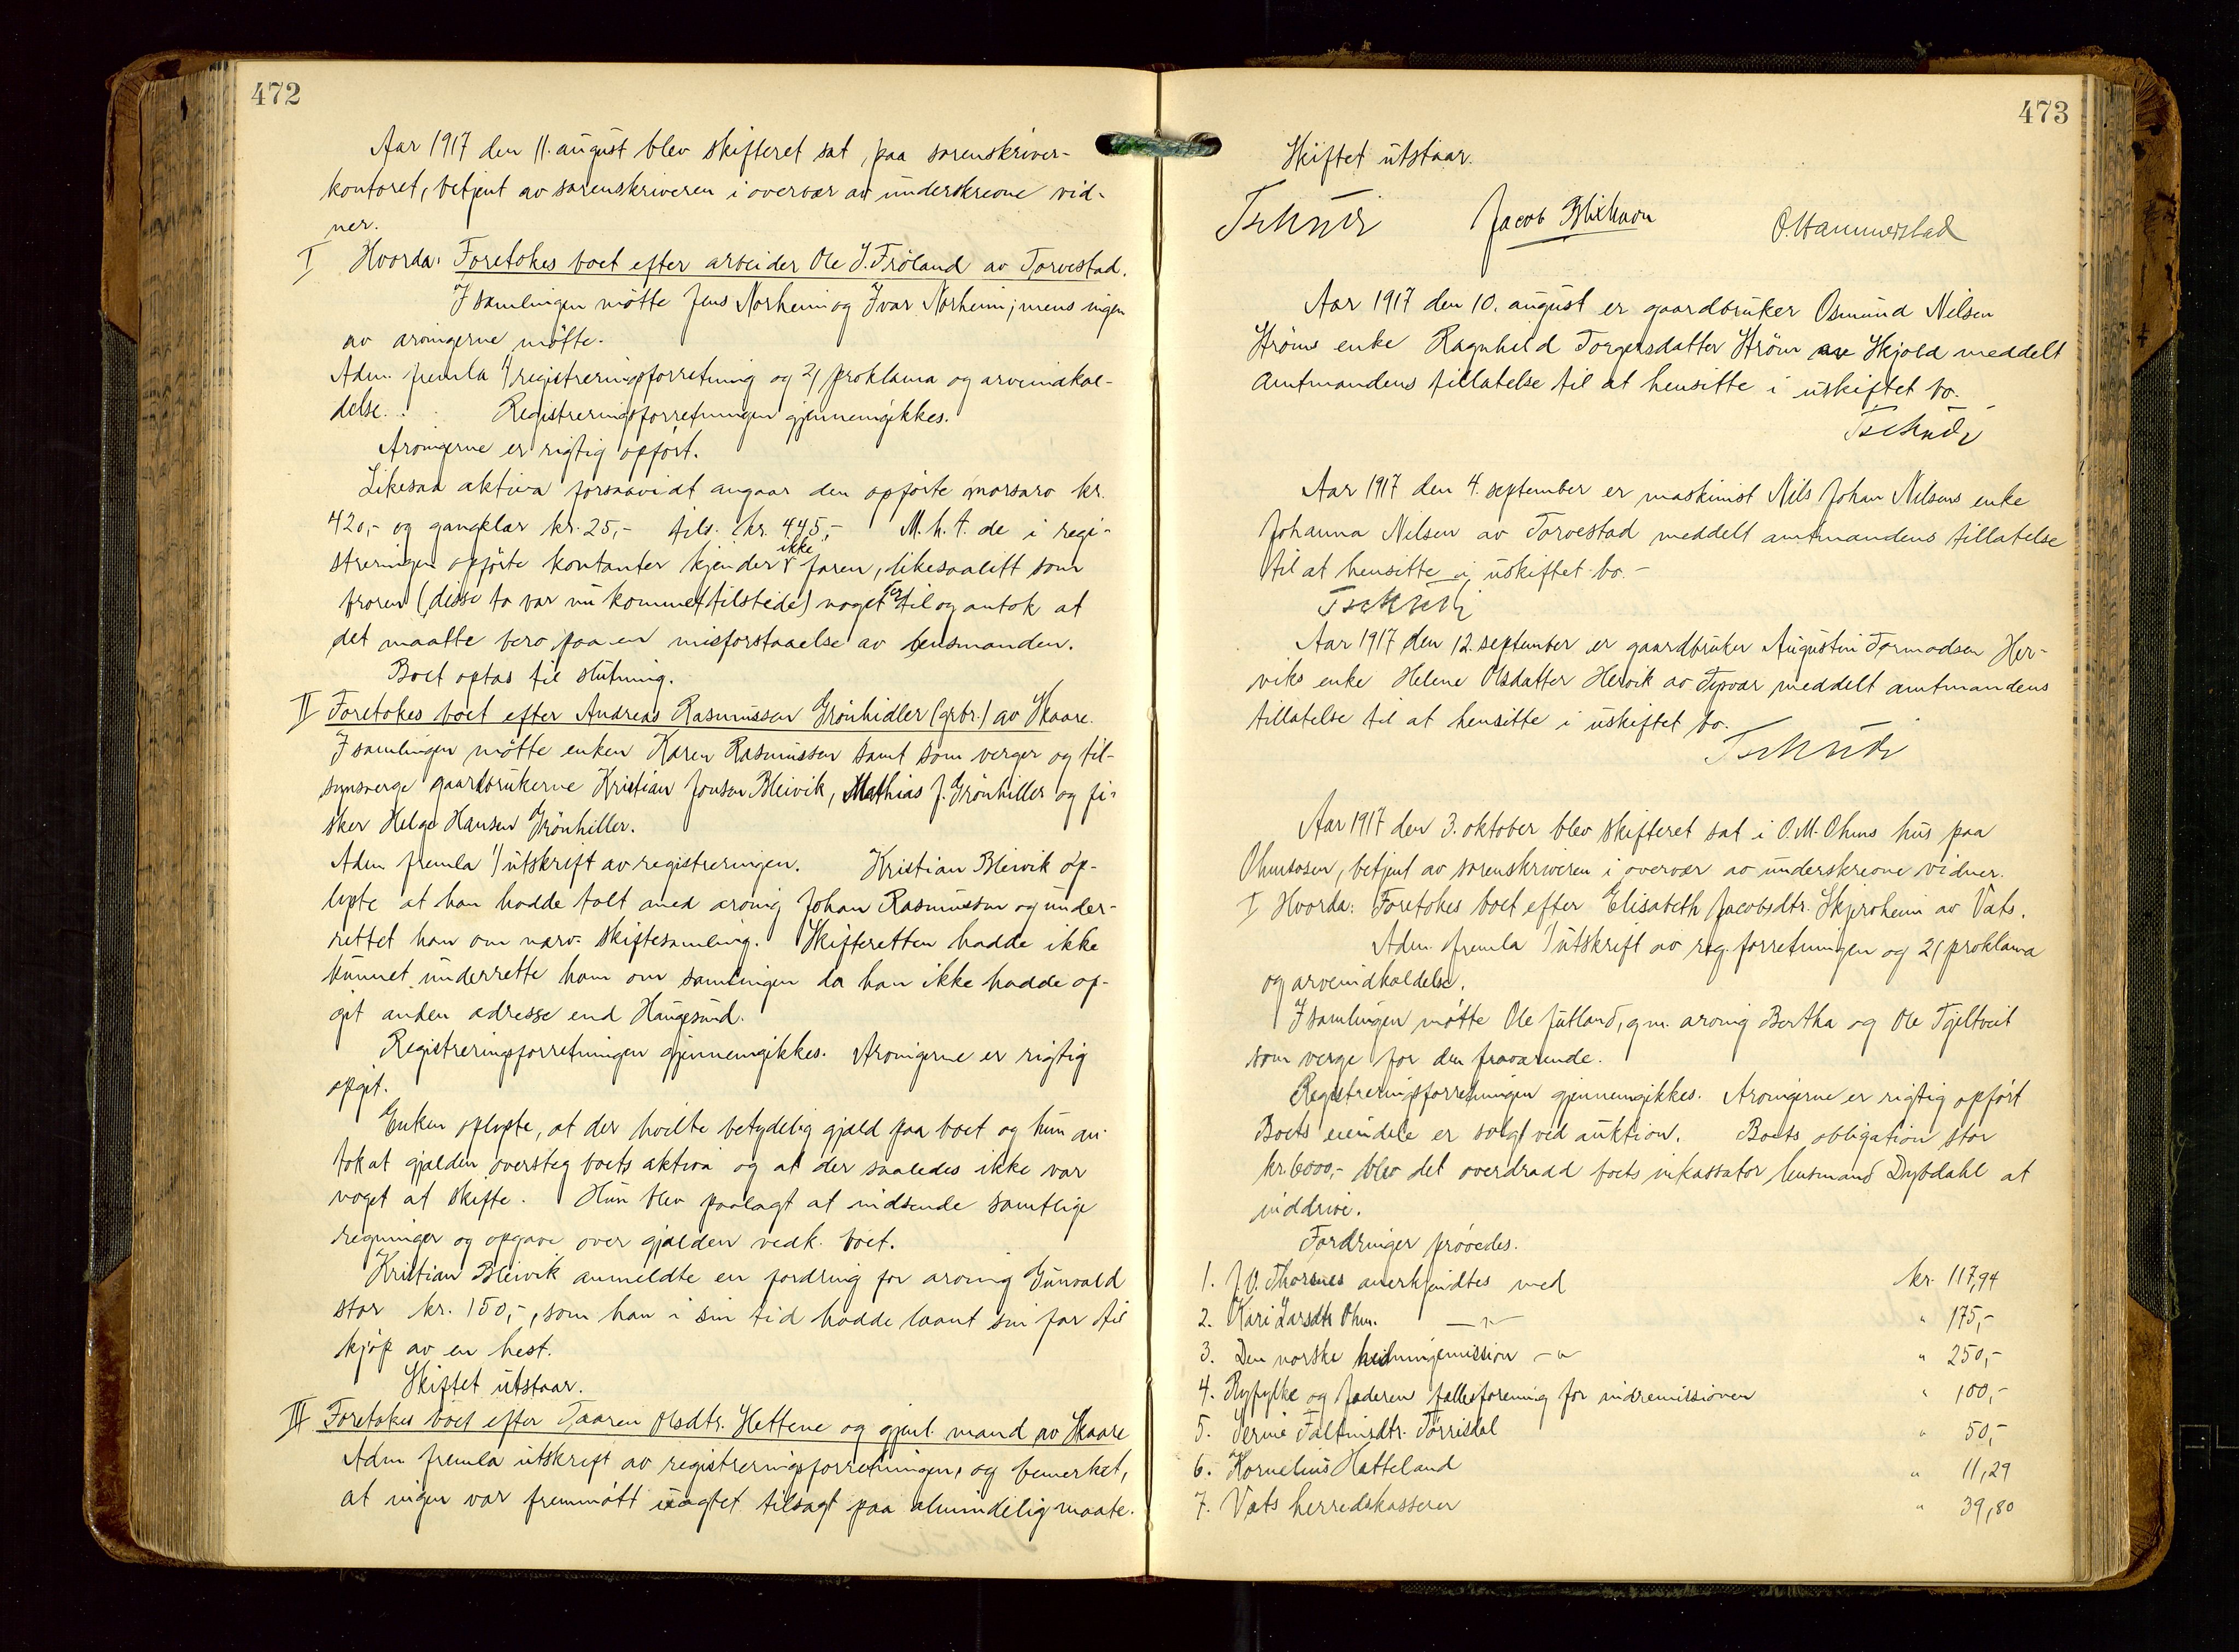 472
Aar 1917 den 11. august blev skifteret sat, paa sorenskriver-
kontoret, betjent av sorenskriveren i overvær av underskrevne vid-
ner.
I Hvorda: Foretokes boet efter arbeider Ole J. Fröland av Torvestad.
I samlingen mötte Jens Norheim og Ivar Norheim; mens ingen
av arvingerne mötte.
Adm. fremla 1) registreringsforretning og 2) proklama og arveindkal-
delse. Registreringsforretningen gjennemgikkes.
Arvingerne er rigtig opfört.
Likesaa aktiva forsaavidt angaar den opförte morsarv kr.
420,- og gangklær kr. 25,- tils. kr. 445,- M.h.t. de i regi-
streringen opförte kontanter kjender ikke faren, likesaalitt som
broren (disse to var nu kommet tilstede) noget til og antok at
det maatte bero paa en misforstaaelse av lensmanden.
Boet optas til slutning.
II Foretokes boet efter Andreas Rasmussen Grönhidler (grbr.) av Skaare.
I samlingen mötte enken Karen Rasmussen samt som verger og til-
synsverge gaardbrukerne Kristian Jonsen Bleivik, Mathias J. Grönhiller og fi-
sker Helge Hansen Grönhiller.
Adm. fremla 1) utskrift av registreringen. Kristian Bleivik op-
lyste at han hadde talt med arving Johan Rasmussen og under-
rettet han om nærv. skiftesamling. Skifteretten hadde ikke
kunnet underrette ham om samlingen da han ikke hadde op-
git anden adresse end Haugesund.
Registreringsforretningen gjennemgikkes. Arvingerne er rigtig
opgit.
Enken oplyste, at der hvilte betydelig gjæld paa boet og hun an-
tok at gjælden oversteg boets aktiva og at der saaledes ikke var
noget at skifte. Hun blev paalagt at indsende samtlige
regninger og opgave over gjælden vedk. boet.
Kristian Bleivik anmeldte en fordring for arving Gunvald
stor kr. 150,-, som han i sin tid hadde laant sin far til
kjöp av en hest.
Skiftet utstaar.
III Foretokes boet efter Taaren Olsdtr. Hettene og gjenl. mand av Skaare
Adm fremla utskrift av registreringsforretningen, og bemerket,
at ingen var fremmött uagtet tilsagt paa almindelig maate.
473
Skiftet utstaar.
Tschudi Jacob Blikhavn O. Hammerstad
Aar 1917 den 10. august er gaardbruker Osmund Nilsen
Ströms enke Ragnhild Torgersdatter Ström av Skjold meddelt
Amtmandens tillatelse til at hensitte i uskiftet bo.
Tschudi
Aar 1917 den 4. september er maskinist Nils Johan Nilsens enke
Johanna Nilsen av Torvestad meddelt amtmandens tillatelse
til at hensitte i uskiftet bo.-
Tschudi
Aar 1917 den 12. september er gaardbruker Augustin Tormodsen Her-
viks enke Helene Olsdatter Hervik av Tysvær meddelt amtmandens
tillatelse til at hensitte i uskiftet bo.
Tschudi
Aar 1917 den 3. oktober blev skifteret sat i O.M. Ohms hus paa
Ohmsosen, betjent av sorenskriveren i overvær av underskrevne vidner.
I Hvorda: Foretokes boet efter Elisabeth Jacobsdtr. Skjerheim av Vats.
Adm. fremla 1) utskrift av reg. forretningen og 2) proklama
og arveindkaldelse.
I samlingen mötte Ole Jutland, gm. arving Bertha og Ole Tjeltveit
som verge for den fraværende.
Registreringsforretningen gjennemgikkes. Arvingerne er rigtig opfört
Boets eiendele er solgt ved auktion. Boets obligation stor
kr. 6000,- blev det overdradd boets inkassator lensmand Drybdahl at
inddrive.
Fordringer prövedes.
1. J.V. Thorsnes anerkjendtes med kr. 117,94
2. Kari Larsdtr Ohm. —"— " 175,-
3. Den norske hedningemission —"— " 250,-
4. Ryfylke og Jæderens fællesforening for indremissionen " 100,-
5. Serine Faltinsdtr. Torrisdal " 50,-
6. Kornelius Hatteland " 11,29
7. Vats herredskasserer " 39,80